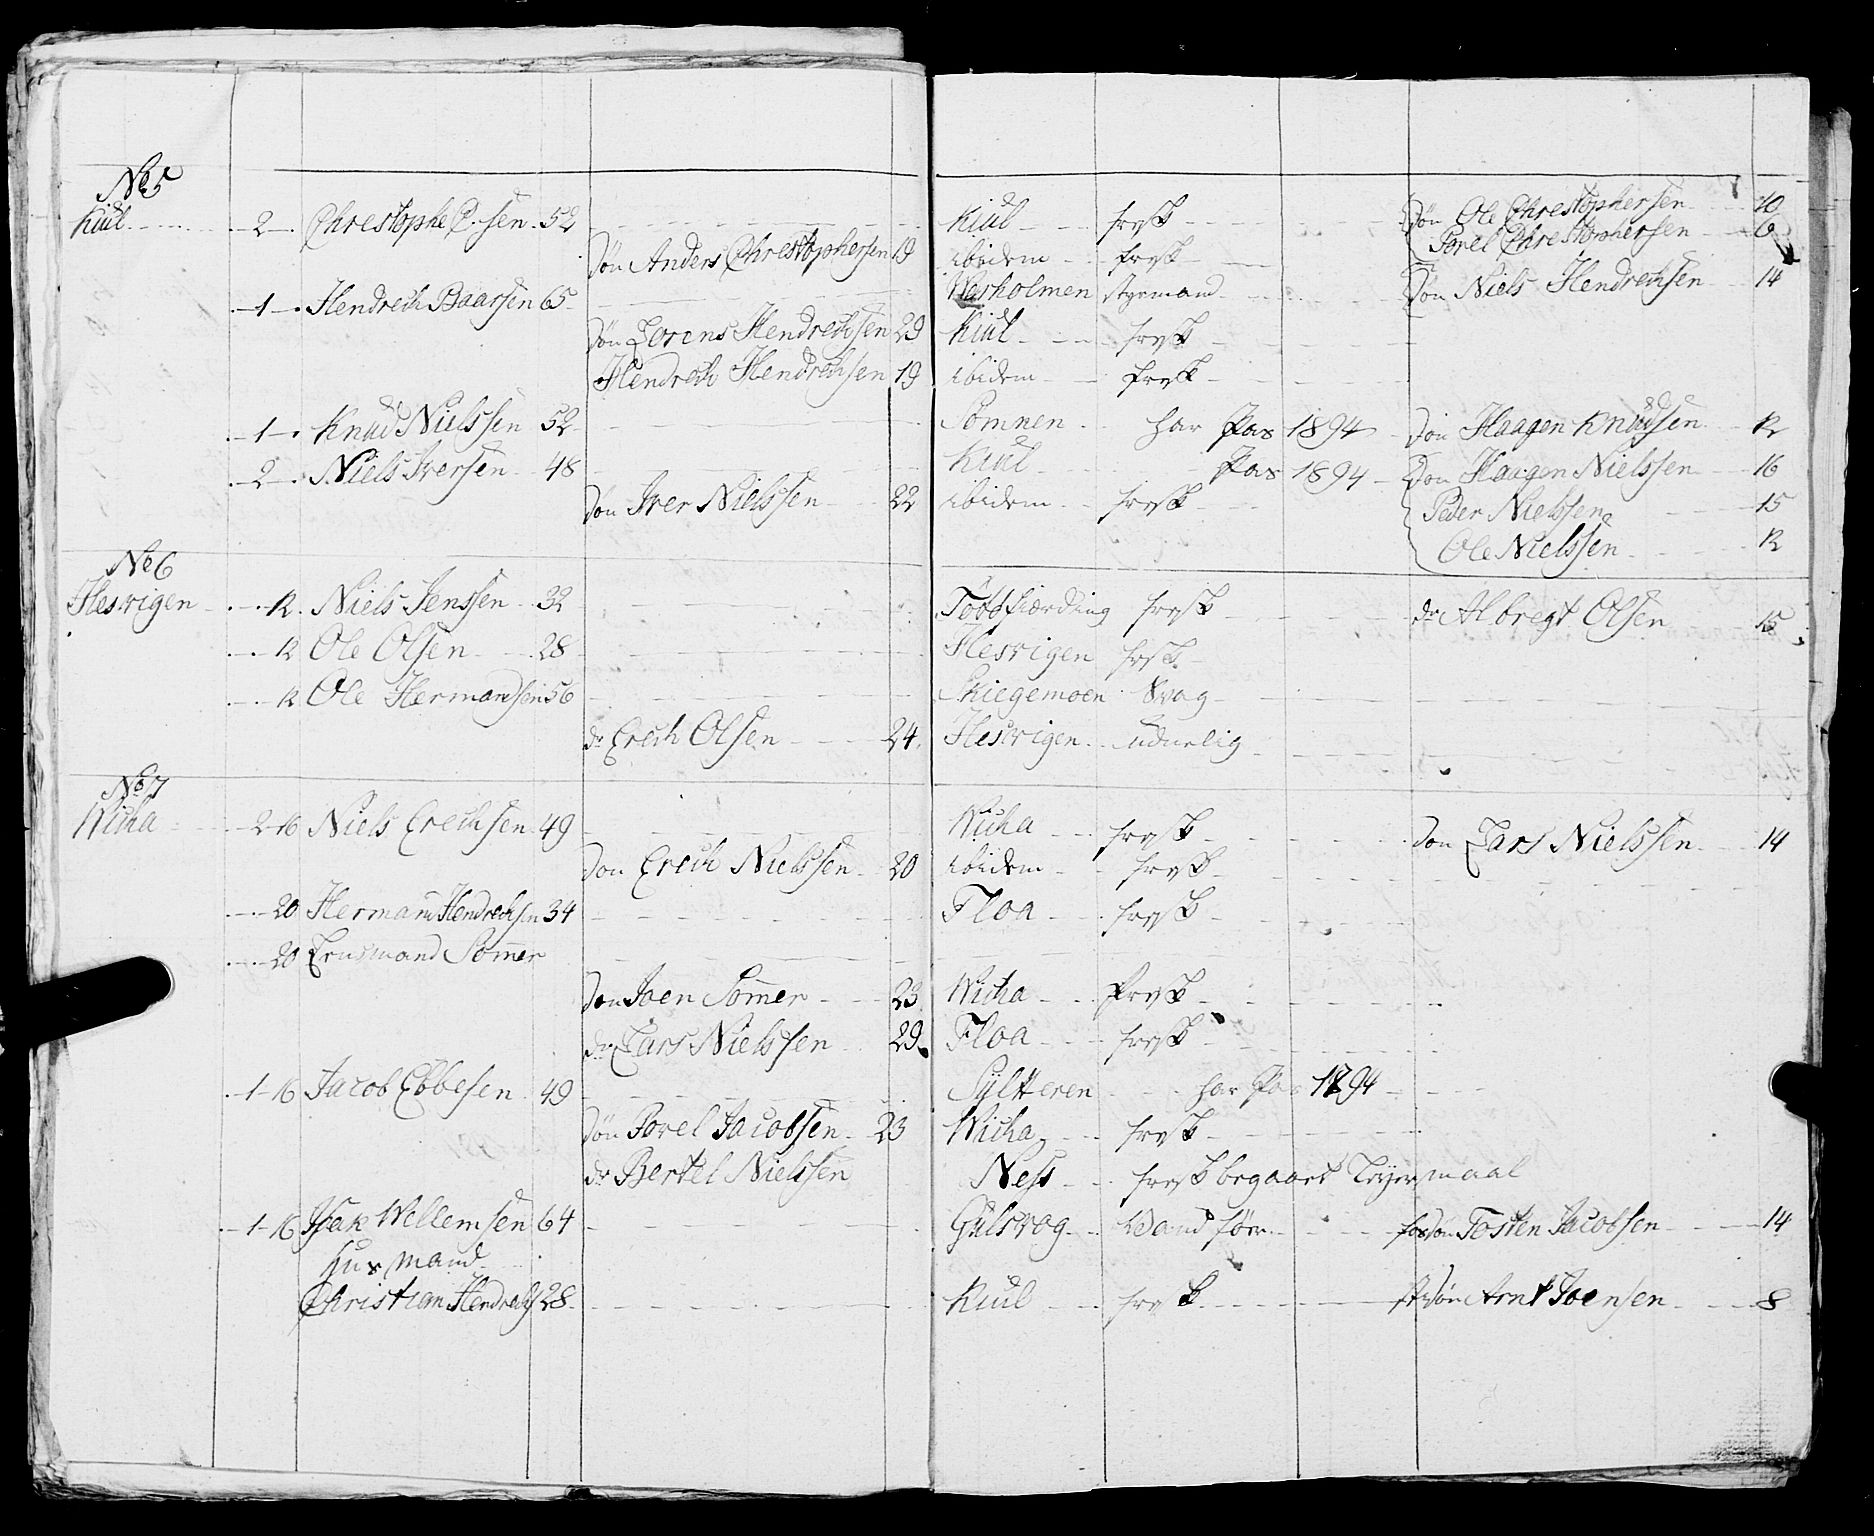 No 5
Kiül 2 Christophe C. sen 52 Kiül frisk Søn Ole Christophersen 10
Søn Anders Christophersen 19 ibidem frisk Povel Christophersen 6
1 Hendrich Baarsen 65 Warholmen styrmand Søn Niels Hendrechsen 14
Søn Lorens Hendrechsen 29 Kiül frisk
Hendrech Hendrechsen 19 ibidem frisk
1 Knud Nielssen 52 Somnen har Pas 1894 Søn Haagen Knudsen 12
2 Niels Iversen 48 Kiul Pas 1894 Søn Haagen Nielssen 16
Søn Iver Nielssen 22 ibidem frisk Peder Nielssen 15
Ole Nielssen 12
No 6
Hesvigen 12 Niels Jenssen 32 frisk dr Albregt Olsen 15
12 Ole Olsen 28 Hesvigen frisk
12 Ole Hermandsen 56 Skiegemoen Svag
dr Erich Olsen 24 Hesvigen uduelig
No 7
Wicha 2-16 Niels Erechsen 49 Wicha frisk Søn Lars Nielssen 14
Søn Erich Nielssen 20 ibidem frisk
20 Hermand Hendrechsen 34 Floa frisk
20 Lensmand Somer
Søn Joen Somer 23 Wicha Frisk
dr Lars Nielssen 29 Floa frisk
1-16 Jacob Ebbesen 49 Syltteren har Pas 1794
Søn Povel Jacobsen 23 Wicha frisk
dr Bertel Nielssen Ness frisk begaaet Leyersmaal
1-16 Isak Wellemsen 64 Gulsvog Wand før Tosten Jacobsen 14
Husmand
Christian Hendrechs 28 Kiul frisk Arnt Joensen 8